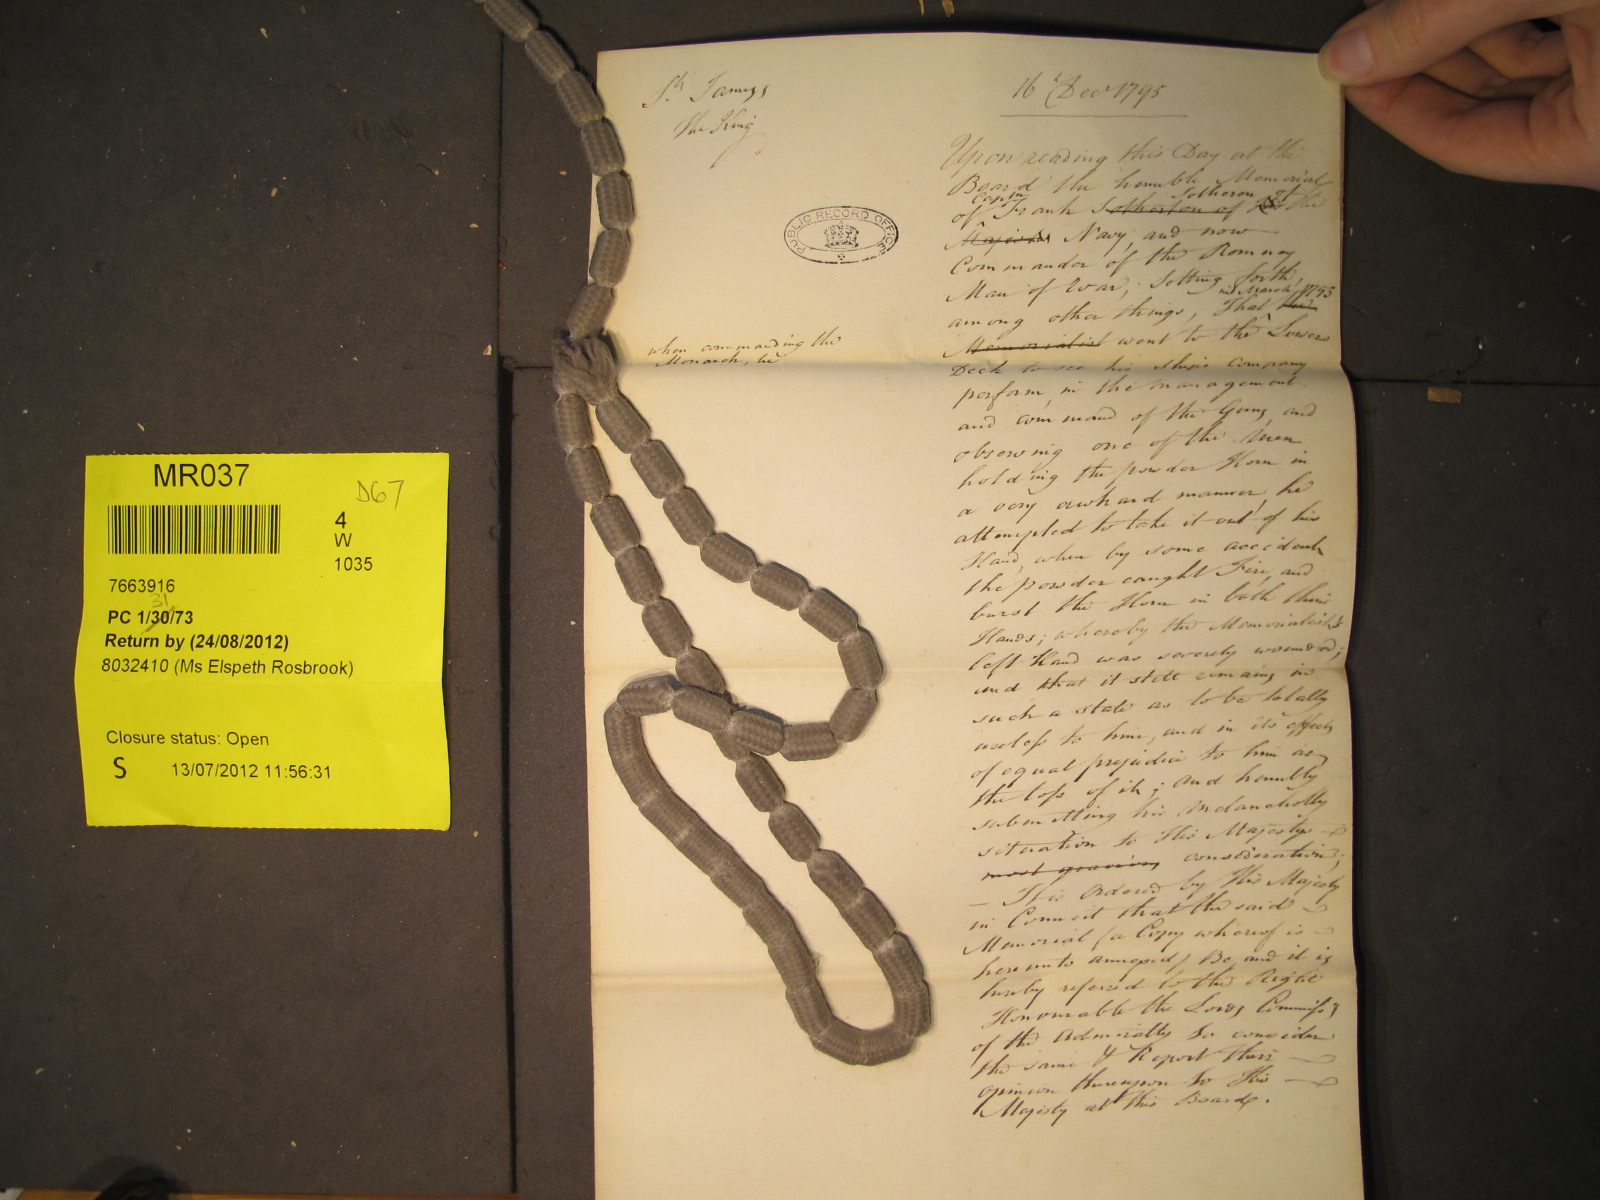 MR037
D67
4
W
1035
7663916
31
PC 1/30/73
Return by (24/08/2012)
8032410 (Ms Elspeth Rosbrook)
Closure status: Open
S
13/07/2012 11:56:31
St. James's
The King
PUBLIC RECORD OFFICE
when commanding the
Monarch, he
16 Decr 1795
Upon reading this Day at the
Board the humble Memorial
Captn Sotheron of
of Frank Sotherton of the
Majesty's Navy, and now
Commander of the Romney
Man of War, setting forth,
in March 1793
among other things, That
Memorialist went to the Lower
Deck to see his Ships company
perform, in the management
and command of the Guns, and
observing one of the Men
holding the powder Horn in
a very awkard manner, he
attempted to take it out of his
Hand, when by some accident
the powder caught Fire, and
burst the Horn in both their
Hands; whereby the Memorialist's
left Hand was severely wounded;
and that it still remains in
such a state as to be totally
useless to him, and in its effects
of equal prejudice to him as
the loss of it; and humbly
submitting his melancholly
situation to His Majesty's
most gracious consideration;
It is Ordered by His Majesty
in Council that the said
Memorial (a Copy whereof is
hereunto annexed) Be, and it is
hereby referred to the Right
Honourable the Lords Commissrs
of the Admiralty to consider
the same & Report their
opinion thereupon to His
Majesty at this Board.